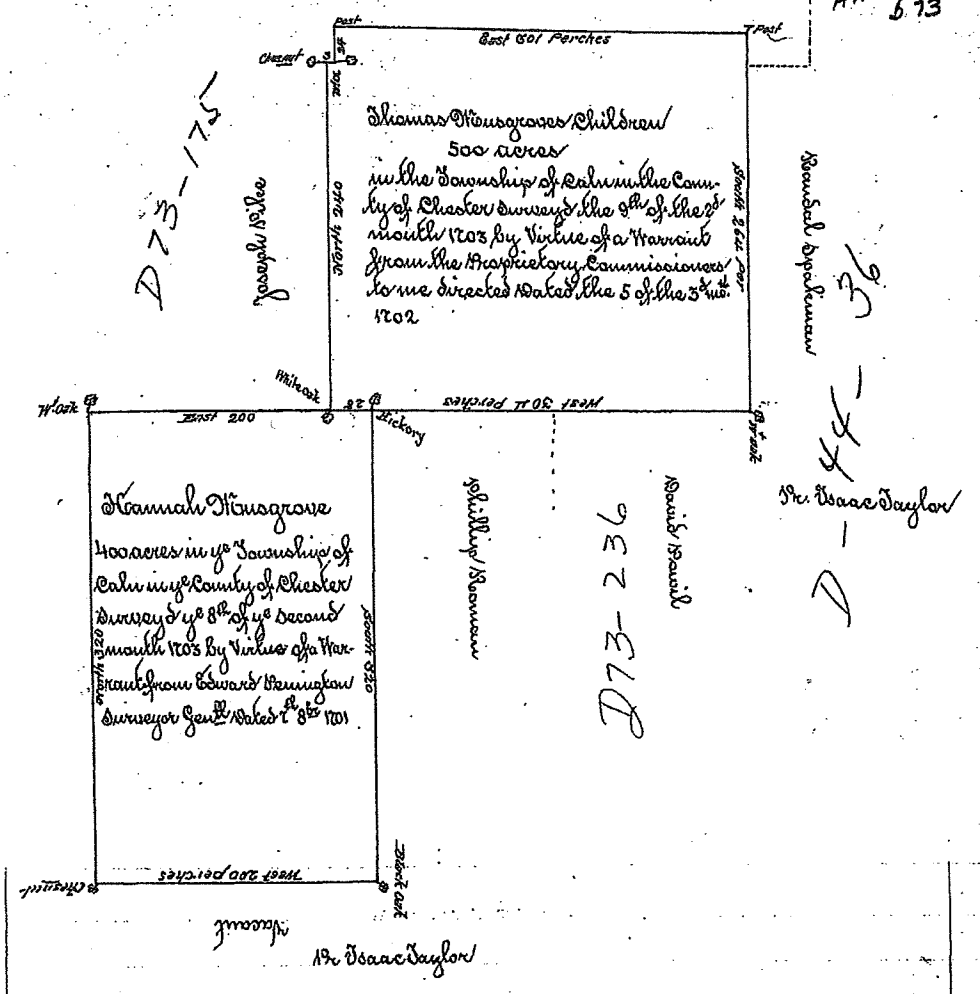 D 73
Post
Post
East 301 Perches
24
3
Chesnut
D73-175
Joseph Pike
North 240
Thomas Musgroves Children
500 acres
in the Township of Caln in the Coun-
ty of Chester Surveyd the 9th of the 2d
month 1703 by Virtue of a Warrant
from the Proprietary Commissioners
to me directed Dated the 5 of the 3d mo.
1702
South 264 Per
Randal Spakman
D-44-36
White oak
W. Oak
East 200
28
Hickory
West 304 Perches
Hannah Musgrove
400 acres in ye Township of
Caln in ye County of Chester
Surveyd ye 8th of ye Second
month 1703 by Virtue of a War-
rant from Edward Penington
Surveyor Genll Dated 7th 8br 1701
North 320
South 320
Phillip Roman
D73-236
David David
Pr. Isaac Taylor
West 200 perches
Chesnut
Black oak
Vacant
Pr Isaac Taylor